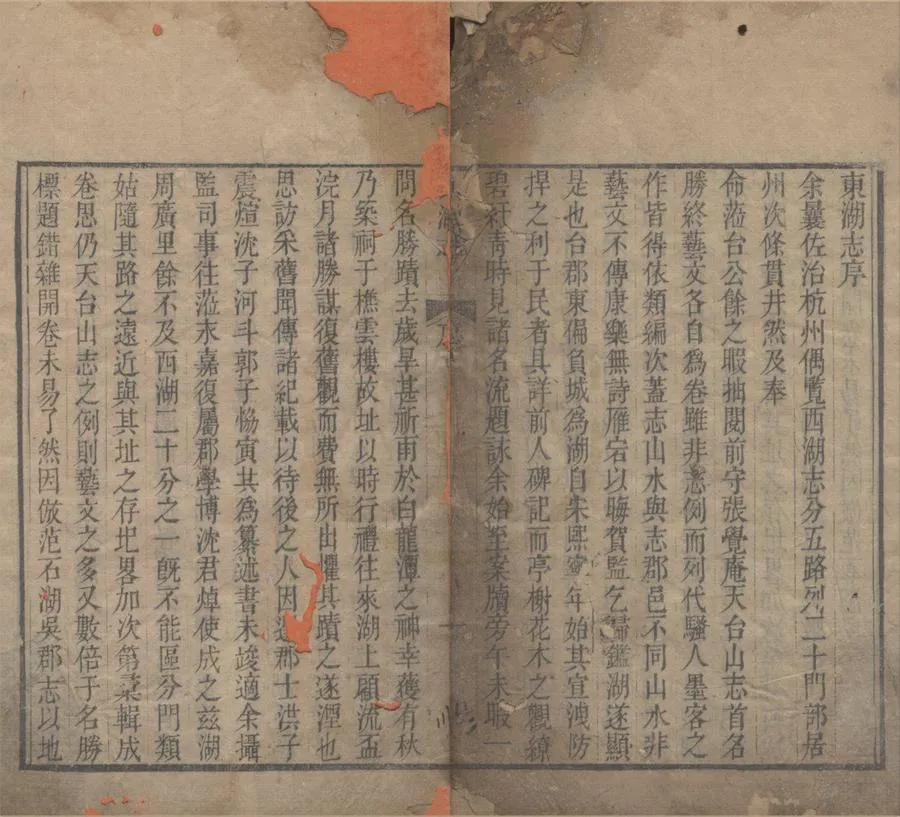 東湖志序
余曩佐治杭州偶覽西湖志分五路烈二十門部居
州次條貫井然及奉
命蒞台公餘之暇抽閱前守張覺庵天台山志首名
勝終藝文各自爲卷雖非志例而列代騷人墨客之
作皆得依類編次蓋志山水與志郡邑不同山水非
藝文不傳康樂無詩雁宕以晦賀監乞歸鑑湖遂顯
是也台郡東偏負城爲湖自宋熙寧年始其宣洩防
捍之利于民者具詳前人碑記而亭榭花木之觀繚
碧紆青時見諸名流題詠余始至案牘旁午未暇一
問名勝蹟去歲旱甚祈雨於白龍潭之神幸獲有秋
乃築祠于樵雲樓故址以時行禮往來湖上顧流盃
浣月諸勝謀復舊觀而費無所出懼其蹟之遂湮也
思訪采舊聞傳諸紀載以待後之人因郡士洪子
震煊沈子河斗郭子協寅其爲纂述書未竣適余攝
監司事往蒞永嘉復屬郡學博沈君焯使成之茲湖
周廣里餘不及西湖二十分之一旣不能區分門類
姑隨其路之遠近與其址之存圯畧加次第彙輯成
卷思仍天台山志之例則藝文之多又數倍于名勝
標題錯雜開卷未易了然因倣范石湖吳郡志以地